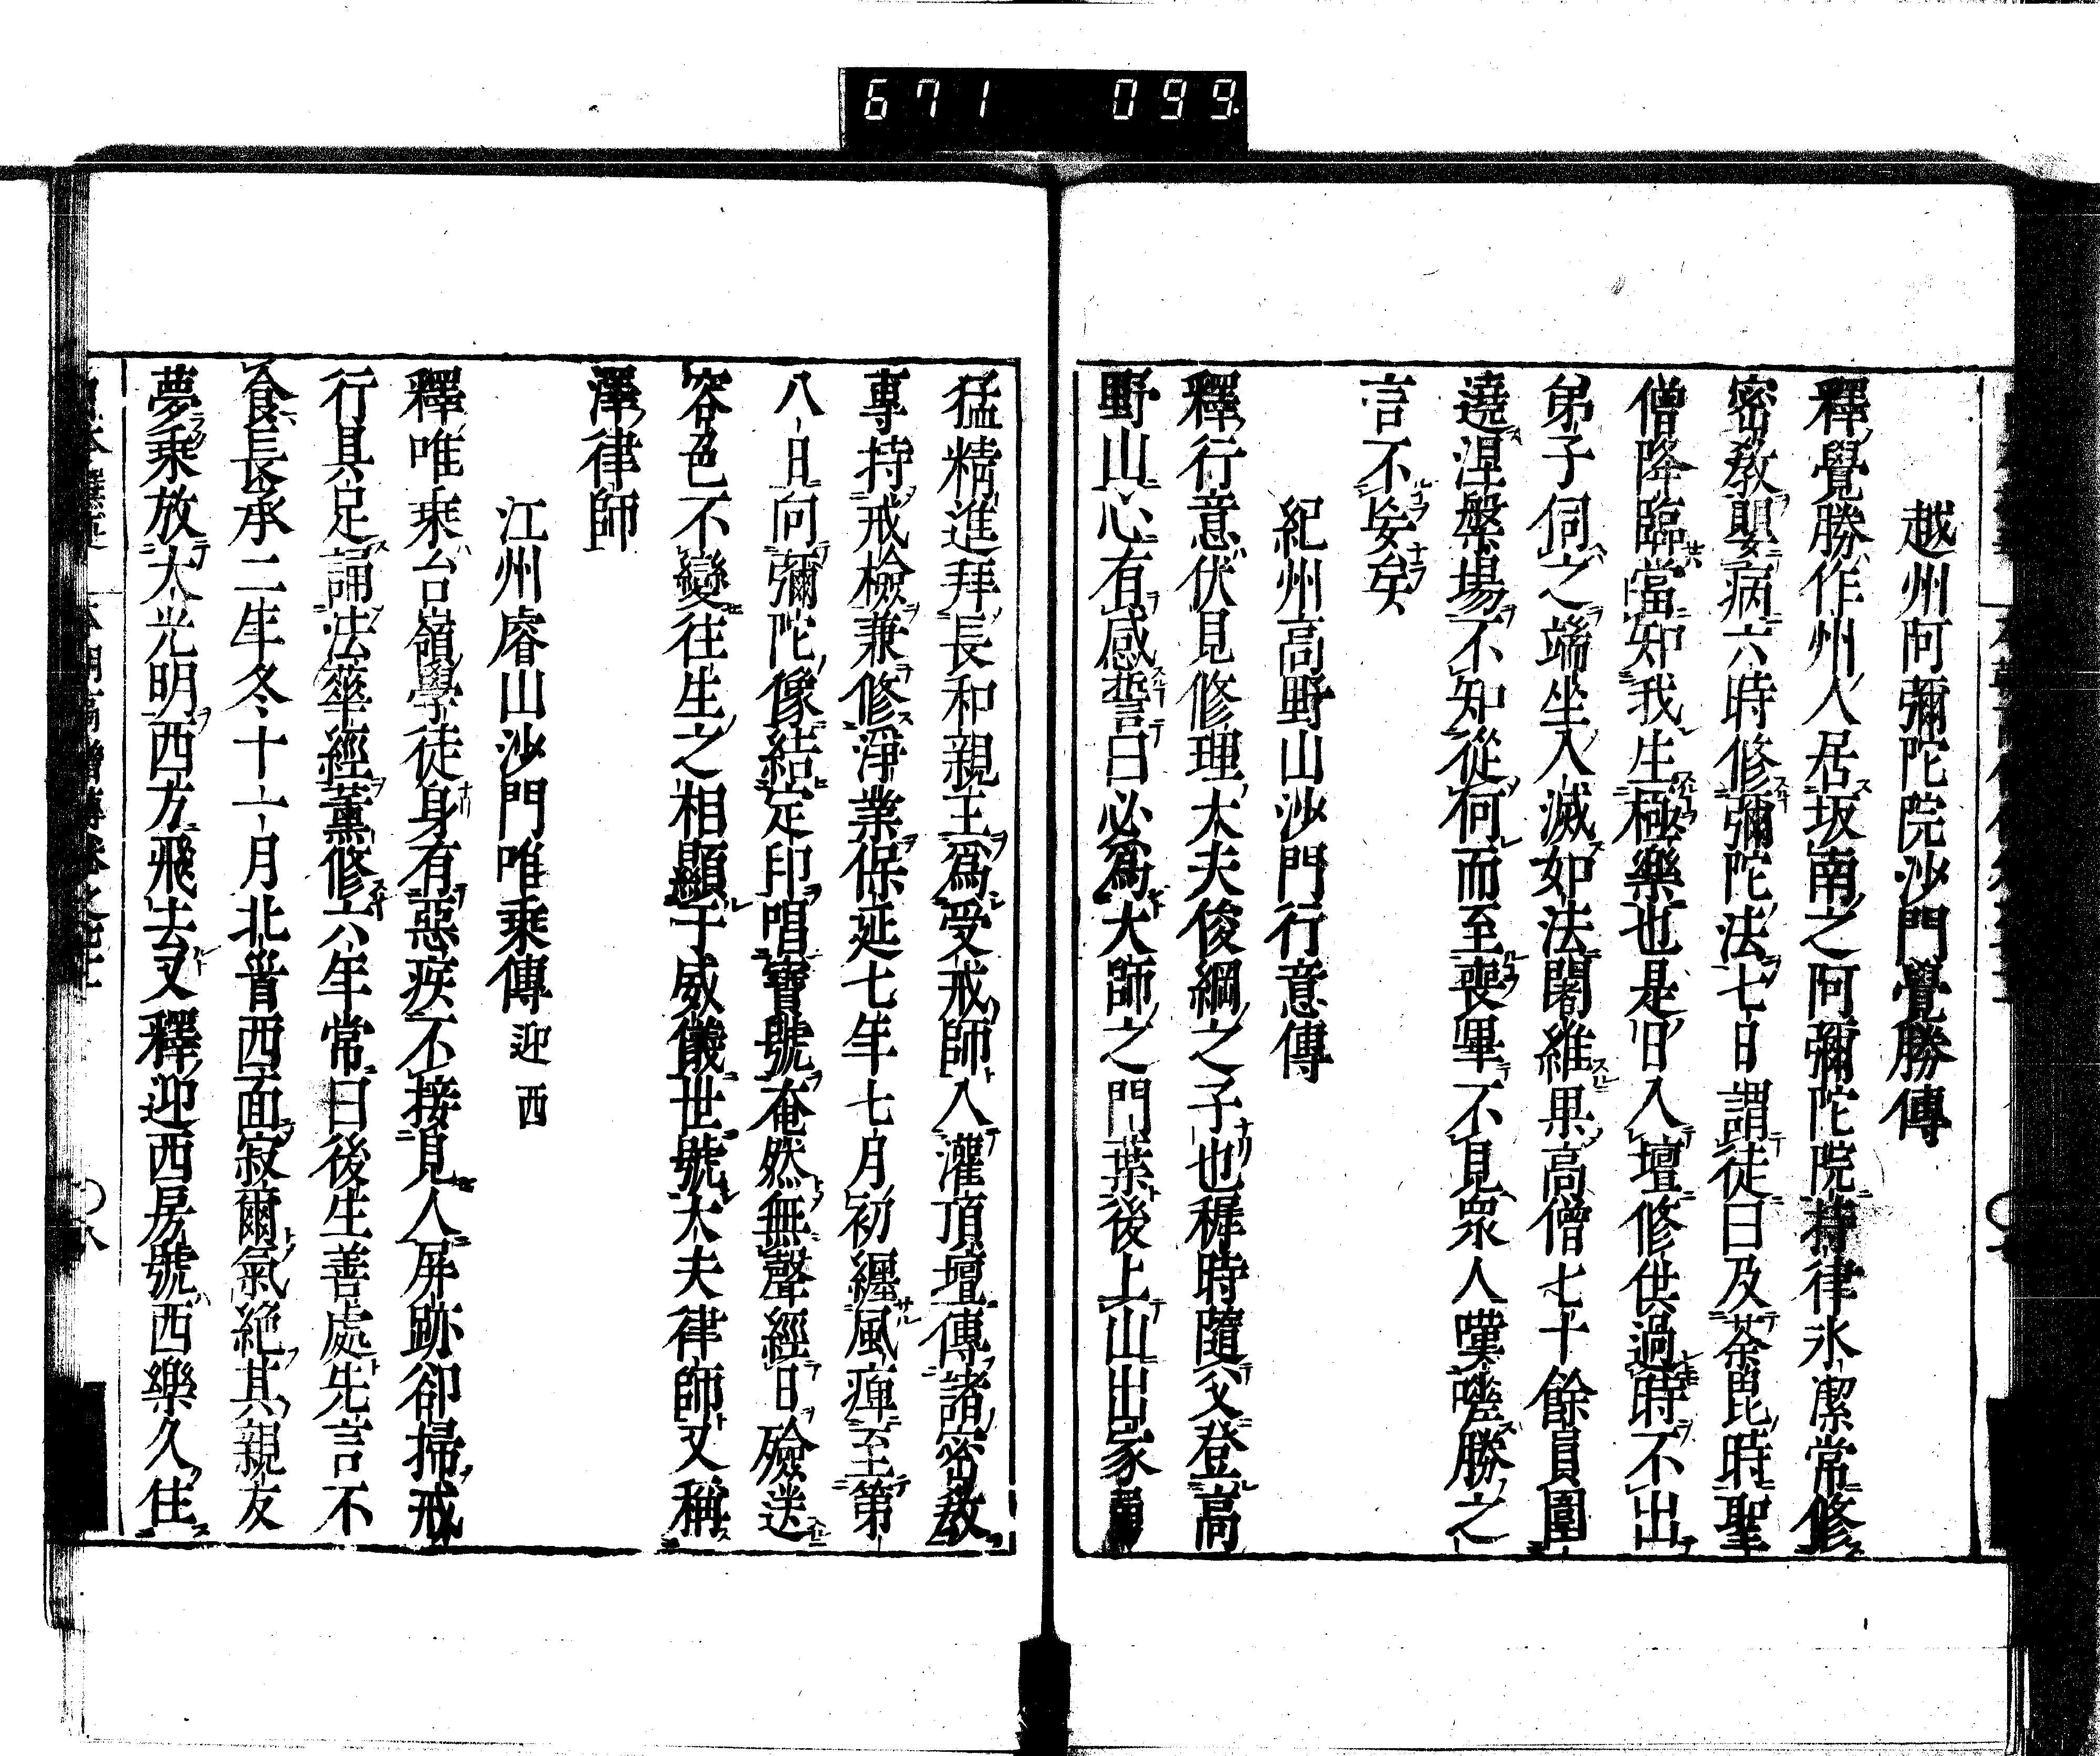 671 099
越州阿彌陀院沙門覺勝傳
釋覺勝作州人居坂南之阿彌陀院持律氷潔常修
密教嬰病六時修彌陀法七日謂徒曰及荼毘時聖
僧降臨當知我生極樂也是日入壇修供過時不出
弟子伺之端坐入滅如法闍維果高僧七十餘員圍
遶涅槃場不知從何而至喪畢不見衆人嘆嗟勝之
言不妄矣
紀州高野山沙門行意傳
釋行意伏見修理大夫俊綱之子也穉時隨父登高
野山心有感誓曰必爲大師之門葉後上山出家勇
猛精進拜長和親王爲受戒師入灌頂壇傳諸密教
專持戒檢兼修淨業保延七年七月初纏風痺至第
八日向彌陀像結定印唱寶號奄然無聲經日殮送
容色不變往生之相顯于威儀世號大夫律師又稱
澤律師
江州睿山沙門唯乗傳迎西
釋唯乗台嶺學徒身有惡疾不接見人屏跡卻掃戒
行具足誦法華經薰修六年常曰後生善處先言不
食長承二年冬十一月北首西面寂爾氣絶其親友
夢乗放大光明西方飛去又釋迎西房號西樂久住